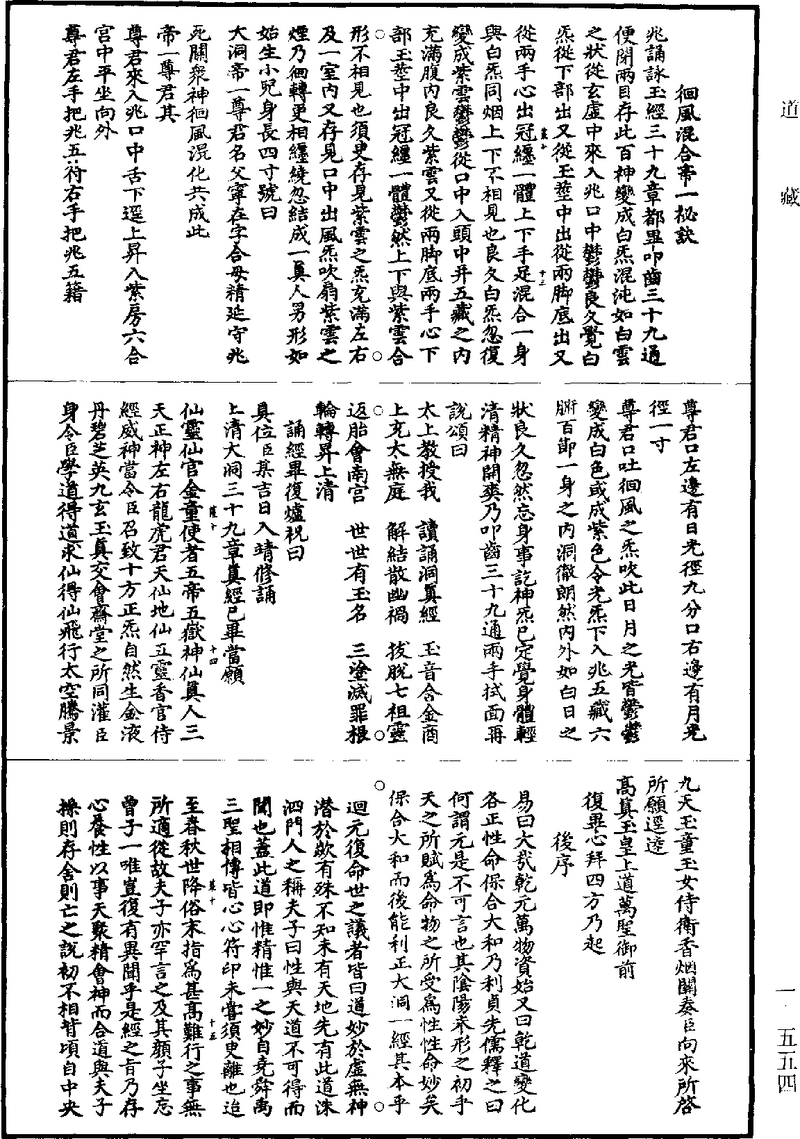 道藏
徊風混合帝一祕訣
兆誦詠玉經三十九章都畢叩齒三十九通
便閉兩目存此百神變成白炁混沌如白雲
之狀從玄虛中來入兆口中鬱鬱良久覺白
炁從下部出又從玉莖中出從兩脚底出又
從兩手心出冠纏一體上下手足混合一身
與白炁同烟上下不相見也良久白炁忽復
變成紫雲鬱鬱從口中入頭中并五藏之內
充滿腹內良久紫雲又從兩脚底兩手心下
部玉莖中出冠纏一體鬱然上下與紫雲合
形不相見也須臾存見紫雲之炁充滿左右
及一室內又存見口中出風炁吹扇紫雲之
煙乃徊轉更相纏繞忽結成一真人男形如
始生小兒身長四寸號曰
大洞帝一尊君名父寧在字合母精延守兆
死關衆神徊風混化共成此
帝一尊君其
尊君來入兆口中舌下逕上昇入紫房六合
宮中平坐向外
尊君左手把兆五符右手把兆五籍
尊君口左邊有日光徑九分口右邊有月光
徑一寸
尊君口吐徊風之炁吹此日月之光皆鬱鬱
變成白色或成紫色令光炁下入兆五藏六
腑百節一身之內洞徹朗然內外如白日之
狀良久忽然忘身事訖神炁已定覺身體輕
清精神開爽乃叩齒三十九通兩手拭面再
說頌曰
太上教授我　讀誦洞真經　玉音合金商
上充太無庭　解結散幽禍　拔脫七祖靈
返胎會南宮　世世有玉名　三塗滅罪根
輪轉昇上清
誦經畢復爐祝曰
具位臣某吉日入靖修誦
上清大洞三十九章真經已畢當願
仙靈仙官金童使者五帝五嶽神仙真人三
天正神左右龍虎君天仙地仙五靈香官侍
經威神當令臣召致十方正炁自然生金液
丹碧芝英九玄玉真交會齋堂之所同灌臣
身令臣學道得道求仙得仙飛行太空騰景
九天玉童玉女侍衛香烟關奏臣向來所啓
所願逕達
高真玉皇上道萬聖御前
復畢心拜四方乃起
後序
易曰大哉乾元萬物資始又曰乾道變化
各正性命保合大和乃利貞先儒釋之曰
何謂元是不可言也其陰陽未形之初乎
天之所賦為命物之所受為性性命妙矣
保合大和而後能利正大洞一經其本乎
迴元復命世之議者皆曰道妙於虛無神
潛於歘有殊不知未有天地先有此道洙
泗門人之稱夫子曰性與天道不可得而
聞也蓋此道即惟精惟一之妙自堯舜禹
三聖相傳皆心心符印未嘗須臾離也迨
至春秋世降俗末指為甚高難行之事無
所適從故夫子亦罕言之及其顏子坐忘
曾子一唯豈復有異聞乎是經之旨乃存
心養性以事天聚精會神而合道與夫子
操則存舍則亡之說初不相背頃自中央
一·五五四